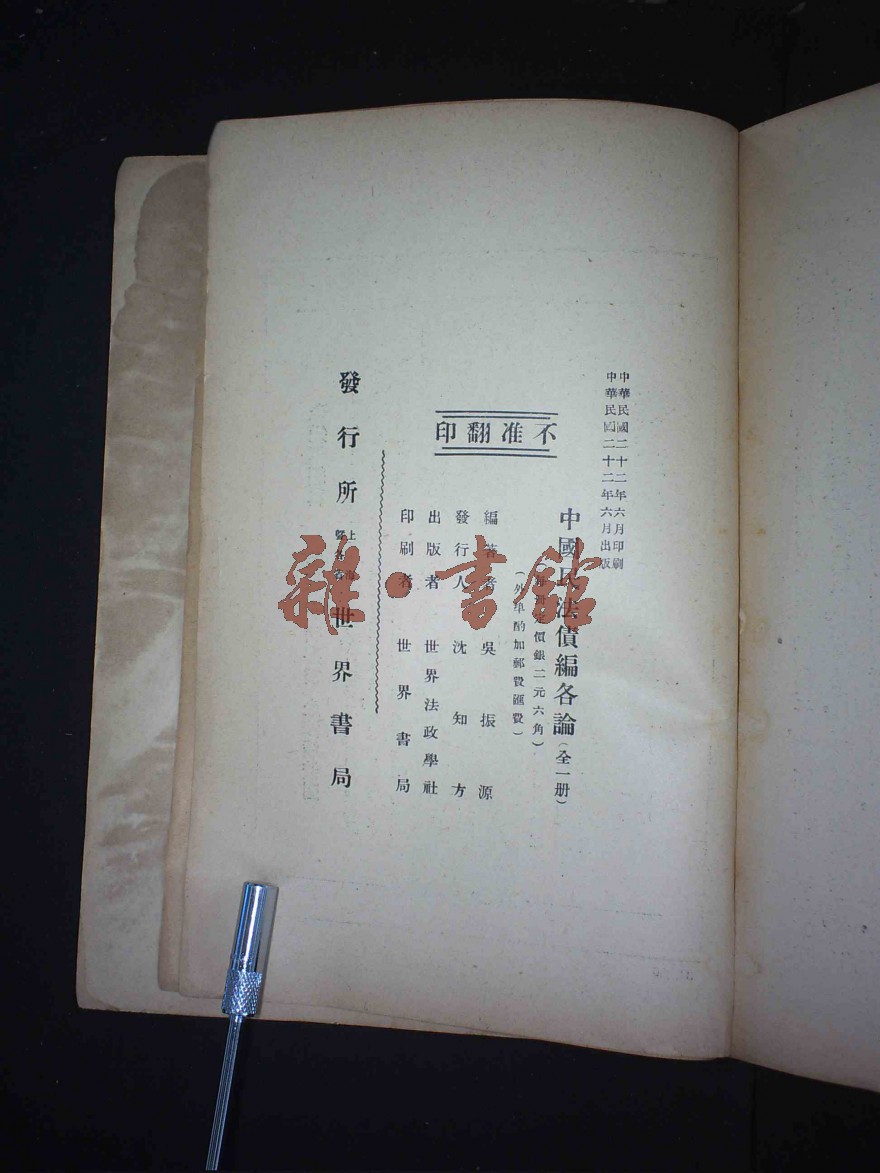 中華民國二十二年六月印刷
中華民國二十二年六月出版
中國民法債編各論(全一册)
定價銀二元六角)
(外埠酌加郵費匯費)
不准翻印
編著者 吳振源
發行人 沈知方
出版者 世界法政學社
印刷者 世界書局
發行所 上海暨各省 世界書局
雜·書館